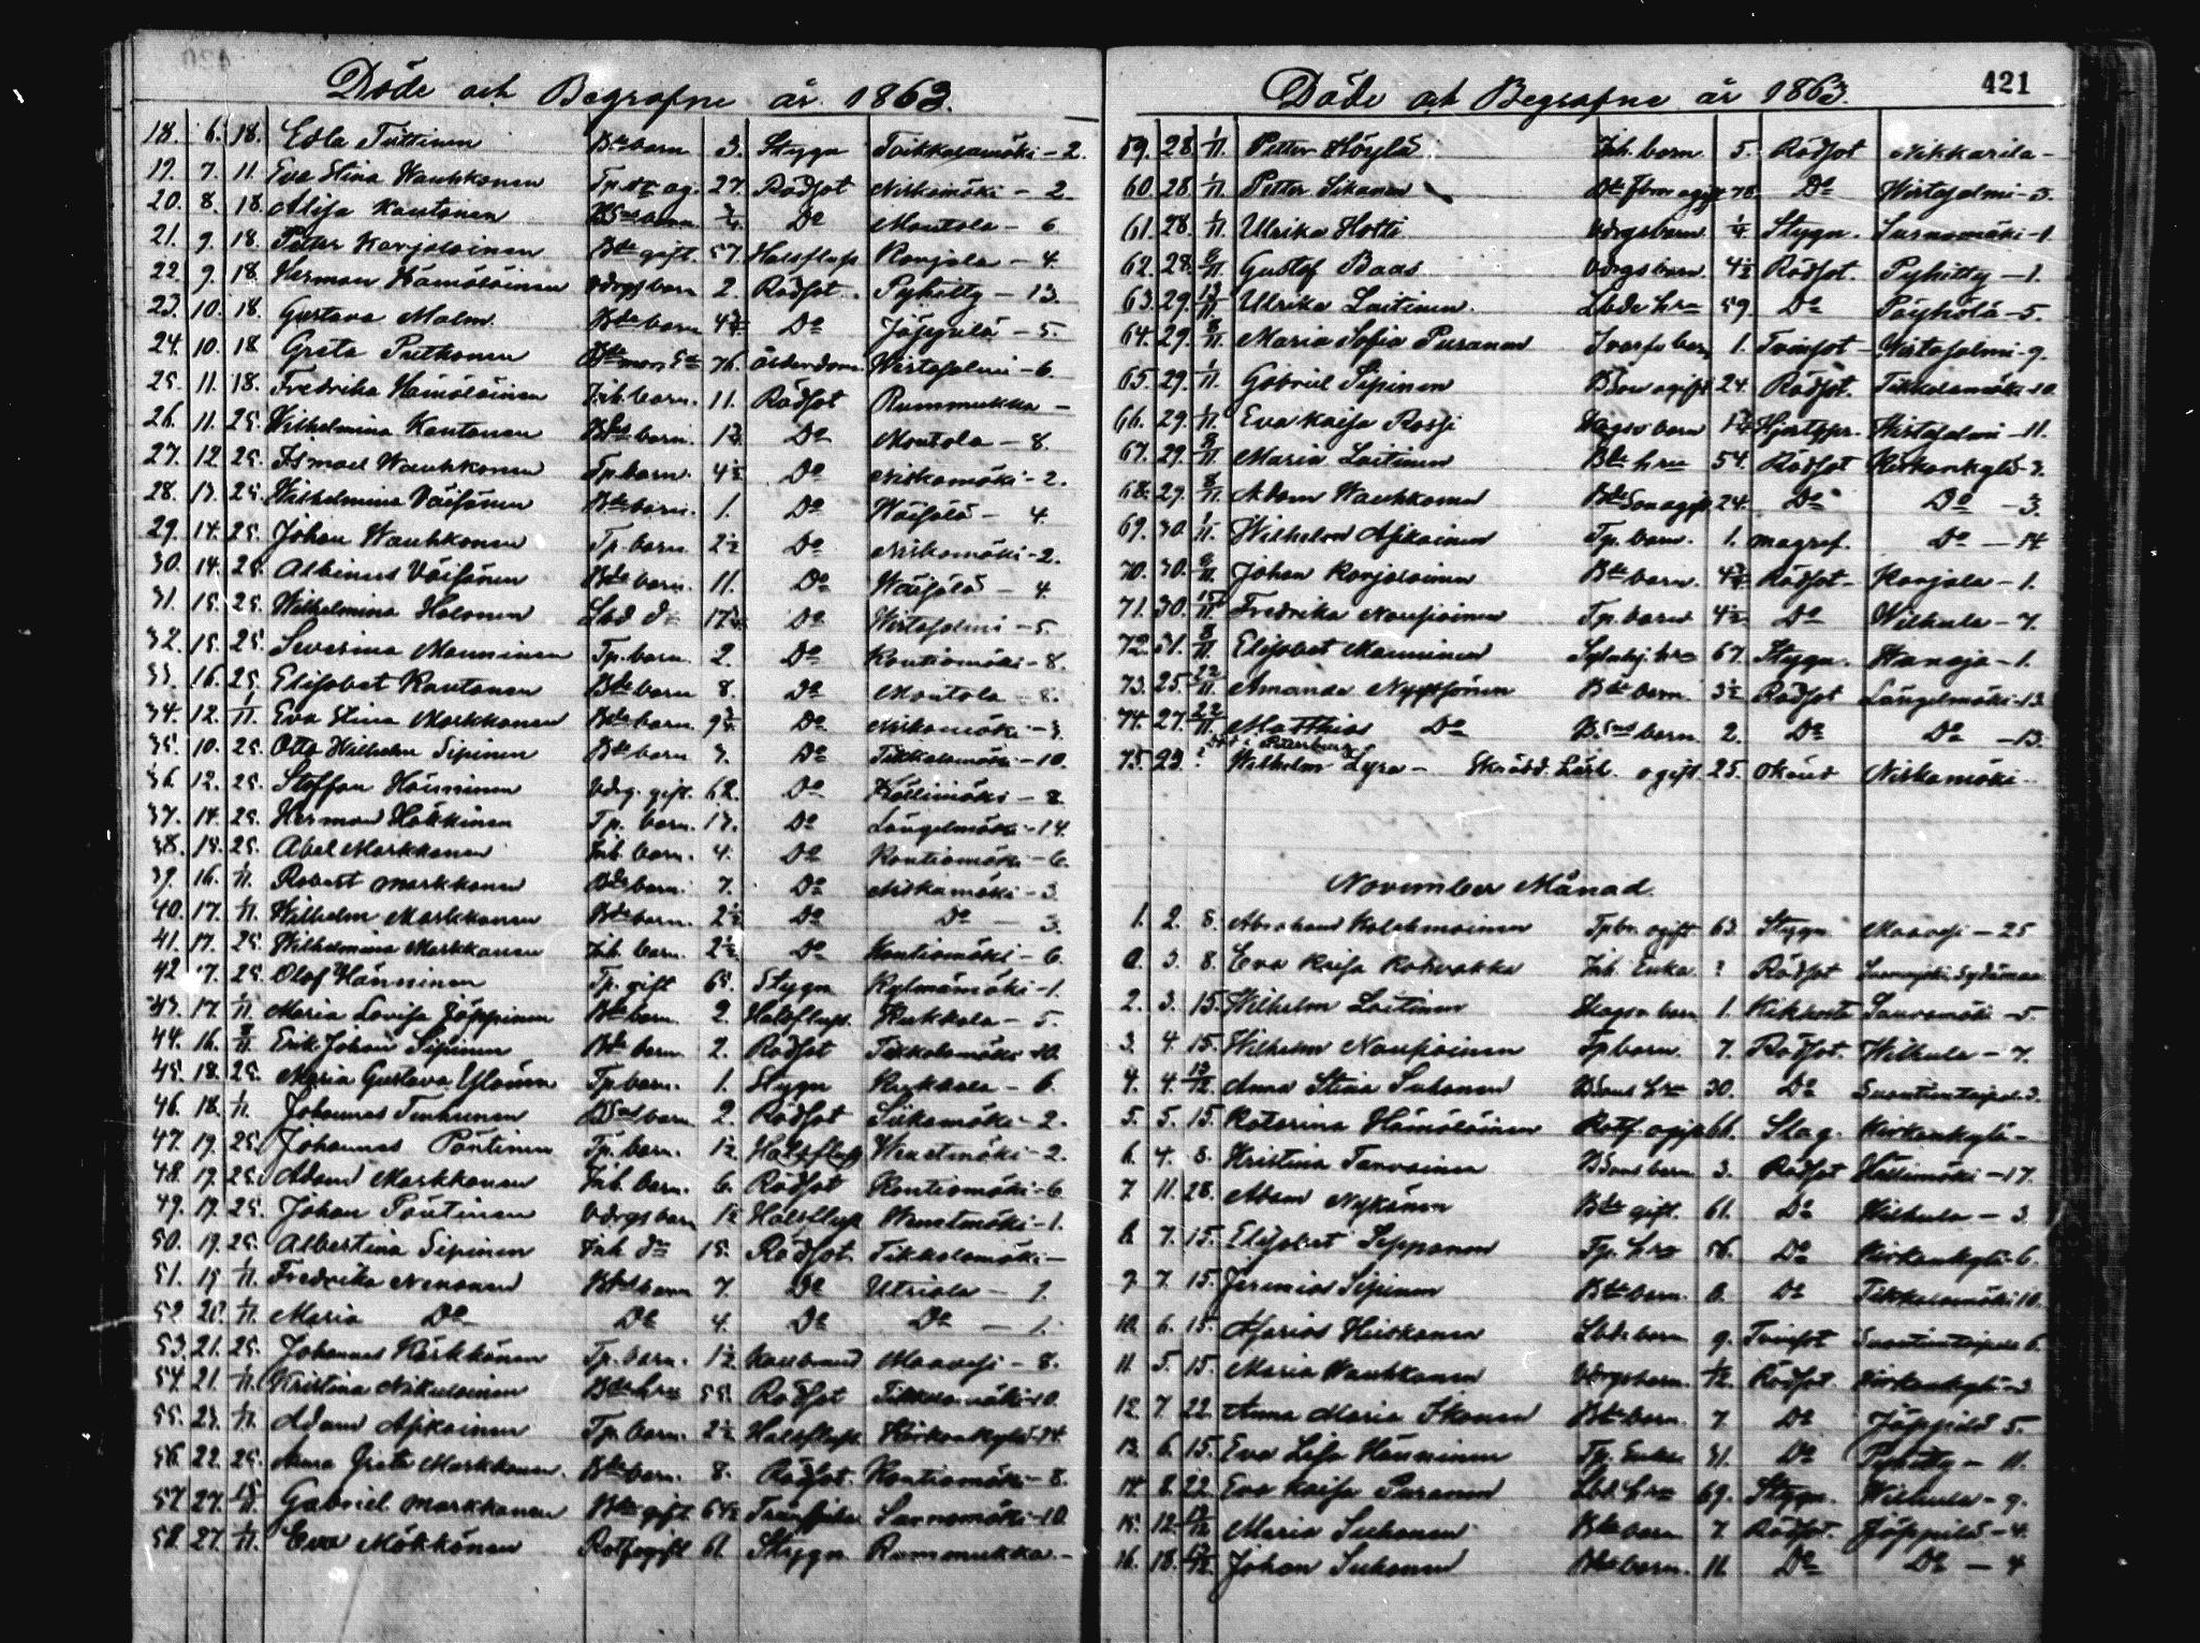 Döde och Begrafne år 1863.
18. 6. 18. Edla Tuttinen Bde barn 3. Stygn Toikkalamäki - 2.
19. 7. 11. Eva Stina Wauhkonen Tp. dr og. 27. Rödsot Niskamäki - 2.
20. 8. 18. Alisa Kautonen BSons barn 3/4 Do Montola - 6
21. 9. 18. Petter Karjalainen Bde gift 57. Halsfluss Karjala - 4.
22. 9. 18. Herman Hämäläinen Vdrgs barn 2. Rödsot. Pyhitty - 13.
23. 10. 18. Gustava Malm. Bde barn 4 3/4 Do Jäppilä - 5.
24. 10. 18 Greta Putkonen 76. ålderdom Wirtasalmi - 6.
25. 11. 18. Fredrika Hämäläinen Inh. barn. 11. Rödsot Rummukka -
26. 11. 25. Wilhelmina Kautonen barn. Do Montola - 8.
27. 12 25. Ismael Wauhkonen Tp. barn. 4 1/2 Do Niskamäki - 2.
28. 13. 25. Wilhelmina Väisänen Bde barn. 1. Do Wäisälä - 4.
29. 14. 25. Johan Wauhkonen Tp. barn 2 1/2 Do Niskamäki - 2.
30. 14. 25. Albinus Väisänen Bde barn. 11. Do Wäisälä - 4.
31. 15. 25. Wilhelmina Holonen Do Wirtasalmi - 5.
32. 15. 25. Severina Manninen Tp. barn. 2. Do Kontiomäki - 8.
33. 16. 25. Elisabet Kautonen Bde barn 8. Do Montola - 8.
34. 12. 1/11 Eva Stina Markkanen Bde barn. 9 3/4 Do Niskamäki - 3.
35. 10. 25. Otto Wilhelm Sipinen Bde barn 3. Do Tikkalamäki - 10.
36. 12. 25. Staffan Häuninen Vdrg. gift. 62. Do Hällimäki - 8.
37. 14. 25. Herman Häkkinen Tp. barn. 13. Do Längelmäki - 14.
38. 15. 25. Abel Markkanen Inh. barn. 4. Do Kontiomäki - 6.
39. 16. 1/11. Robert Markkanen Bde barn. 7. Do Niskamäki - 3.
40. 17. 1/11. Wilhelm Markkanen Bde barn. 2 1/2 Do Do - 3.
41. 17. 25. Wilhelmina Markkanen Inh. barn. 2 1/2 Do Kontiomäki - 6.
42 17. 25. Olof Hänninen Tp. gift 65. Stygn Kylmämäki - 1.
43. 17. 1/11 Maria Lovisa Jäppinen Bde barn. 2. Halsfluss. Hukkala - 5.
44. 16. 8/11 Erik Johan Sipinen Bde barn 2. Rödsot Tikkalamäki - 10.
45. 18. 25. Maria Gustava Ylönen Tp. barn. 1. Stygn Hukkala - 6.
46. 18. 1/11. Johannes Tenhunen BSons barn 2. Rödsot Siikamäki - 2.
47. 19. 25. Johannes Pöntinen Tp. barn. 1 1/2 Halsfluss Wenetmäki - 2.
48. 19. 25. Adam Markkanen Inh. barn. 6. Rödsot Kontiomäki - 6.
49. 19. 25. Johan Pöntinen Vdrgs barn 1 1/2 Halsfluss Wenetmäki - 1.
50. 19. 25. Albertina Sipinen Inh. dr 15. Rödsot. Tikkalamäki -
51. 19 1/11. Fredrika Nenonen barn 7. Do Utriala - 1.
52. 20. 1/11. Maria Do Do 4. Do Do - 1.
53. 21. 25. Johannes Kärkkänen Tp. barn. 1 1/2 Kallbrand Maavesi - 8.
54. 21. 1/11. Kristina Nikulainen Bde hru 55. Rödsot Tikkalamäki - 10.
55. 23. 1/11. Adam Asikainen Tp. barn. 2 1/2 Halsfluss Kirkonkylä - 14.
56. 22. 25. Anna Greta Markkanen. Bde barn. 8. Rödsot. Kontiomäki - 8.
57. 27. 15/11. Gabriel Markkanen Bde gift 64 1/2 Sarnomäki - 10.
58. 27. 1/11. Eva Mökkönen 61. Stygn. Rummukka. -
Döde och Begrafne år 1863.
421
59. 28. 1/11. Petter Höylä Inh. barn. 5. Rödsot Nikkarila -
60. 28. 1/11. Petter Sikanen 78. Do Wirtasalmi - 3.
61. 28. 1/11. Ulrika Hotti Vdrgs barn. 1/4 Stygn. Sarnomäki - 1.
62. 28. 8/11. Gustaf Baas Vdrgs barn. 4 1/2 Rödsot. Pyhitty - 1.
63. 29. 13/11. Ulrika Laitinen. Lbde hru 59. Do Pöyhölä - 5.
64. 29. 8/11. Maria Sofia Puranen barn 1. Tvinsot - Wirtasalmi - 9.
65. 29. 1/11. Gabriel Sipinen BSon ogift 24. Rödsot. Tikkalamäki - 10.
66. 29. 1/11. Eva Kaisa Rossi barn Wirtasalmi - 11.
67. 29. 8/11. Maria Laitinen Bde hru 54. Rödsot Kirkonkylä - 3.
68. 29. 8/11. Adam Wauhkonen Bde Son ogift 24. Do Do - 3.
69. 30. 1/11. Wilhelm Asikainen Tp. barn. 1. magref. Do - 14
70. 30. 8/11. Johan Karjalainen Bde barn. 4 3/4 Rödsot - Karjala - 1.
71. 30. 15/11. Fredrika Naupoinen Tp. barn 4 1/2 Do Wilhula - 7.
72. 31. 8/11. Elisabet Manninen hru 67. Stygn. Hanaja - 1.
73. 25. 22/11. Amanda Nyyssönen Bde barn. 3 1/2 Rödsot Längelmäki - 13.
74. 27. 22/11. Matthias Do BSons barn 2. Do Do - 13.
i Petersburg
75. 23. ? Wilhelm Lyra - Skrädd. Lärl. ogift 25. okänd Niskamäki -
November Månad.
1. 2. 8. Abraham Kolehmainen ogift 63. Stygn. Maavesi - 25
0. 3. 8. Eva Kaisa Rohvakka Inh. Enka ? Rödsot
2. 3. 15. Wilhelm Laitinen barn 1. Kikhosta - 5.
3. 4. 15. Wilhelm Naupoinen Tp barn. 7. Rödsot. Wilhula - 7.
4. 4. 13/12 Anna Stina Suhonen BSons hru 30. Do
5. 5. 15. Katarina Hämäläinen ogift 66. Slag. Kirkonkylä -
6. 4. 8. Kristina Tarvainen BSons barn 3. Rödsot Hällimäki - 17.
7. 11. 28. Adam Nykänen Bde gift. 61. Do Wilhula - 3
8. 7. 15. Elisabet Seppänen Tp. hru 56. Do Kirkonkylä - 6.
9. 7. 15. Jeremias Sipinen Bde barn. 8. Do Tikkalamäki 10.
10. 6. 15. Asarias Hirskanen Lbde barn 9. Tvinsot
11. 5. 15. Maria Wauhkonen Vdrgs barn. 1/12. Rödsot. Kirkonkylä - 3
12. 7. 22. Anna Maria Ikonen Bde barn. 7. Do Jäppilä 5.
13. 6. 15. Eva Lisa Hänninen Tp. Enka 31. Do Pyhitty - 11.
14. 8. 22. Eva Kaisa Puranen Lbd. hru 69. Stygn. Wilhula - 9.
15. 12. Maria Suhonen Bde barn 7. Rödsot. Jäppilä - 4.
16. 18. Johan Suhonen Bde barn. 11. Do Do - 4